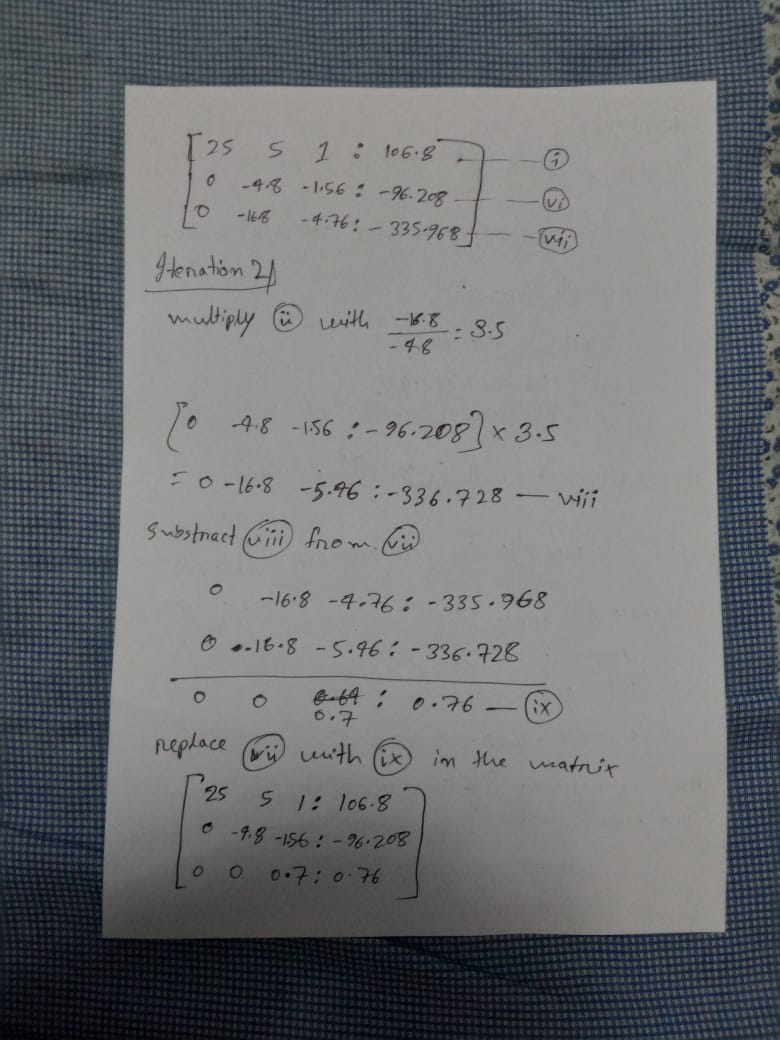 [25 5 1 : 106.8] — (i)
[0 -4.8 -1.56 : -96.208] — (vi)
[0 -16.8 -4.76 : -335.968] — (vii)
Iteration 2
multiply (ii) with -16.8/-4.8 = 3.5
[0 -4.8 -1.56 : -96.208] × 3.5
= 0 -16.8 -5.46 : -336.728 — viii
Substract (viii) from (vii)
0 -16.8 -4.76 : -335.968
0 -16.8 -5.46 : -336.728
0 0 0.7 : 0.76 — (ix)
replace (vii) with (ix) in the matrix
[25 5 1 : 106.8]
[0 -4.8 -1.56 : -96.208]
[0 0 0.7 : 0.76]